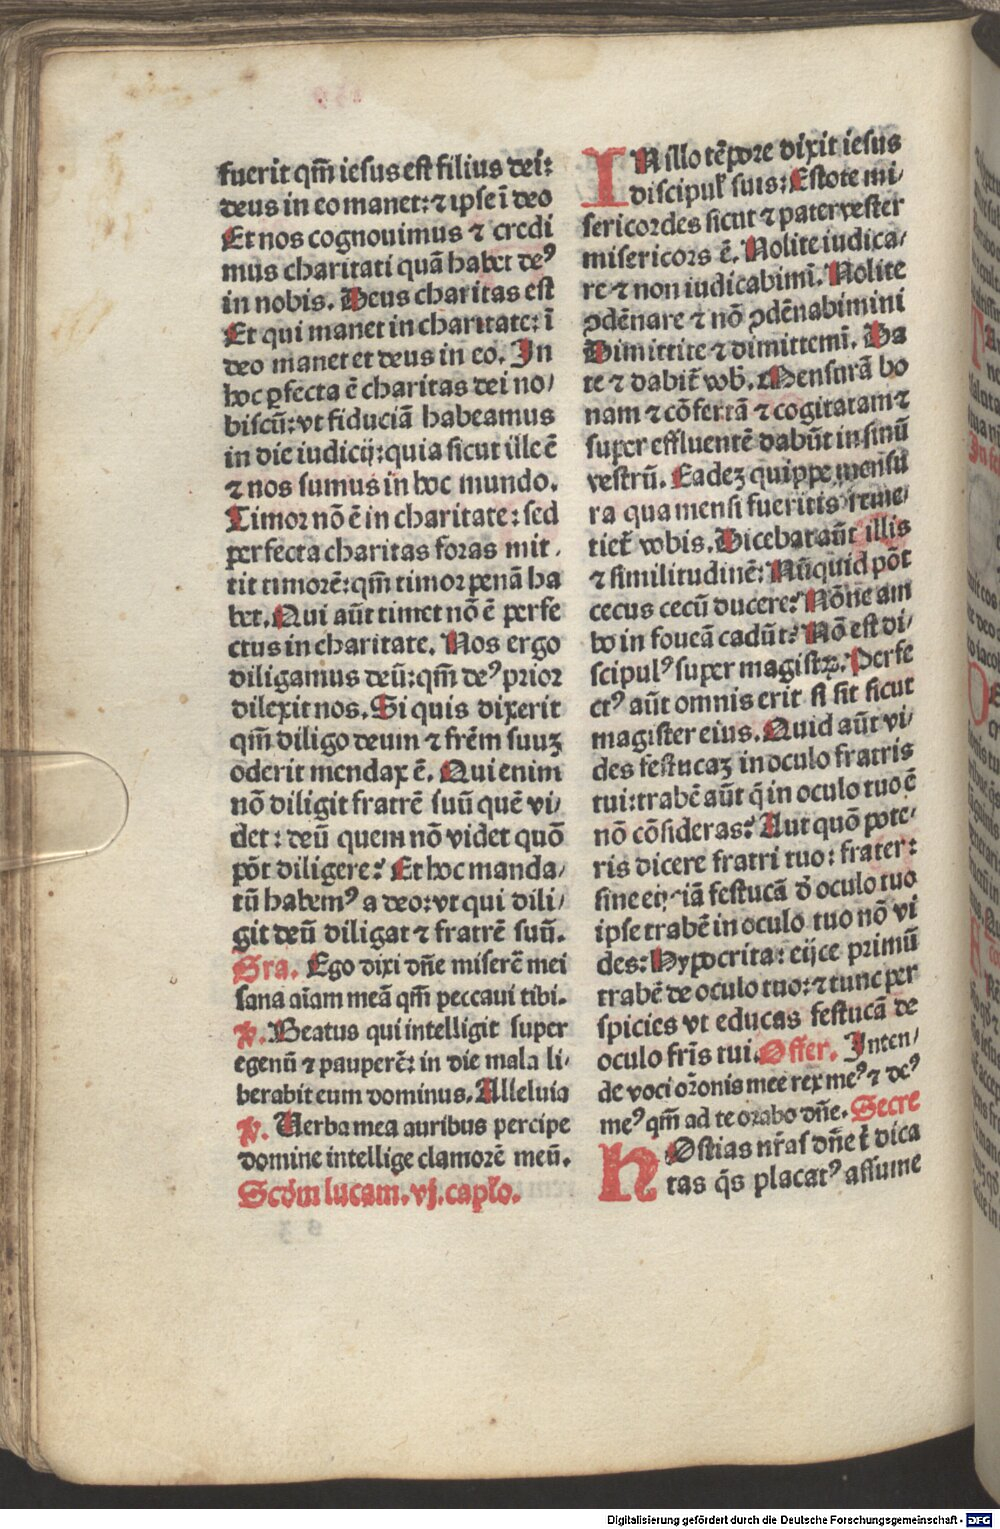 fuerit qm̄ iesus est filius dei:
deus in eo manet: ⁊ ipse ī deo
Et nos cognouimus ⁊ credi
mus charitati quā habet deꝰ
in nobis. Deus charitas est
Et qui manet in charitate: ī
deo manet et deus in eo. In
hoc ꝑfecta ē charitas dei no/
biscū: vt fiduciā habeamus
in die iudicij: quia sicut ille ē
⁊ nos sumus in hoc mundo.
Timor nō ē in charitate: sed
perfecta charitas foras mit
tit timorē: qm̄ timor penā ha
bet. Qui aūt timet nō ē perfe
ctus in charitate. Nos ergo
diligamus deū: qm̄ deꝰ prior
dilexit nos. Si quis dixerit
qm̄ diligo deum ⁊ frēm suuꝫ
oderit mendax ē. Qui enim
nō diligit fratrē suū quē vi/
det: deū quem nō videt quō
pōt diligere? Et hoc manda/
tū habemꝰ a deo: vt qui dili/
git deū diligat ⁊ fratrē suū.
Gra. Ego dixi dñe miserē mei
sana aīam meā qm̄ peccaui tibi.
℣. Beatus qui intelligit super
egenū ⁊ pauperē: in die mala li-
berabit eum dominus. Alleluia
℣. Uerba mea auribus percipe
domine intellige clamorē meū.
Scdm lucam. vj. capło.
IN illo tēpore dixit iesus
discipuł suis: Estote mi/
sericordes sicut ⁊ pater vester
misericors ē. Nolite iudica/
re ⁊ non iudicabimī. Nolite
ꝯdēnare ⁊ nō ꝯdēnabimini
Dimittite ⁊ dimittemī. Da
te ⁊ dabit̄ vob̄. Mensurā bo
nam ⁊ cōfertā ⁊ cogitatam ⁊
super effluentē dabūt in sinū
vestrū. Eadeꝫ quippe mensu
ra qua mensi fueritis reme/
tiet̄ vobis. Dicebat aūt illis
⁊ similitudinē: Nūquid pōt
cecus cecū ducere? Nōne am
bo in foueā cadūt? Nō est di/
scipulꝰ super magistꝝ. Perfe
ctꝰ aūt omnis erit si sit sicut
magister eius. Quid aūt vi/
des festucaꝫ in oculo fratris
tui: trabē aūt q̄ in oculo tuo ē
nō cōsideras? Aut quō pote/
ris dicere fratri tuo: frater:
sine eijciā festucā d̄ oculo tuo
ipse trabē in oculo tuo nō vi
des: Hypocrita: eijce primū
trabē de oculo tuo: ⁊ tunc per
spicies vt educas festucā de
oculo frīs tui. Offer. Inten/
de voci oīonis mee rex meꝰ ⁊ deꝰ
meꝰ qm̄ ad te orabo dñe. Secre
HOstias nr̄as dñe t̄ dica
tas q̄s placatꝰ assume
Digitalisierung gefördert durch die Deutsche Forschungsgemeinschaft - DFG